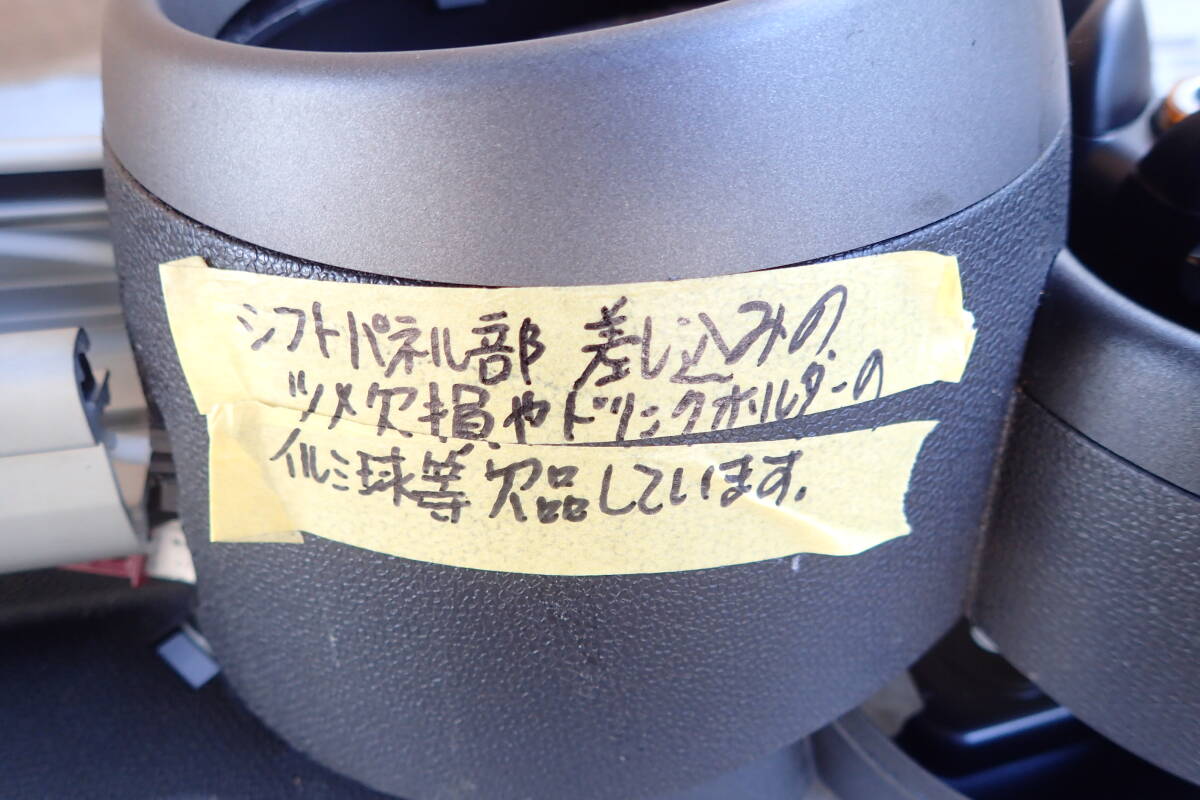 シフトパネル部 差し込みの
ツメ欠損やドリンクホルダーの
イルミ球等 欠品しています.